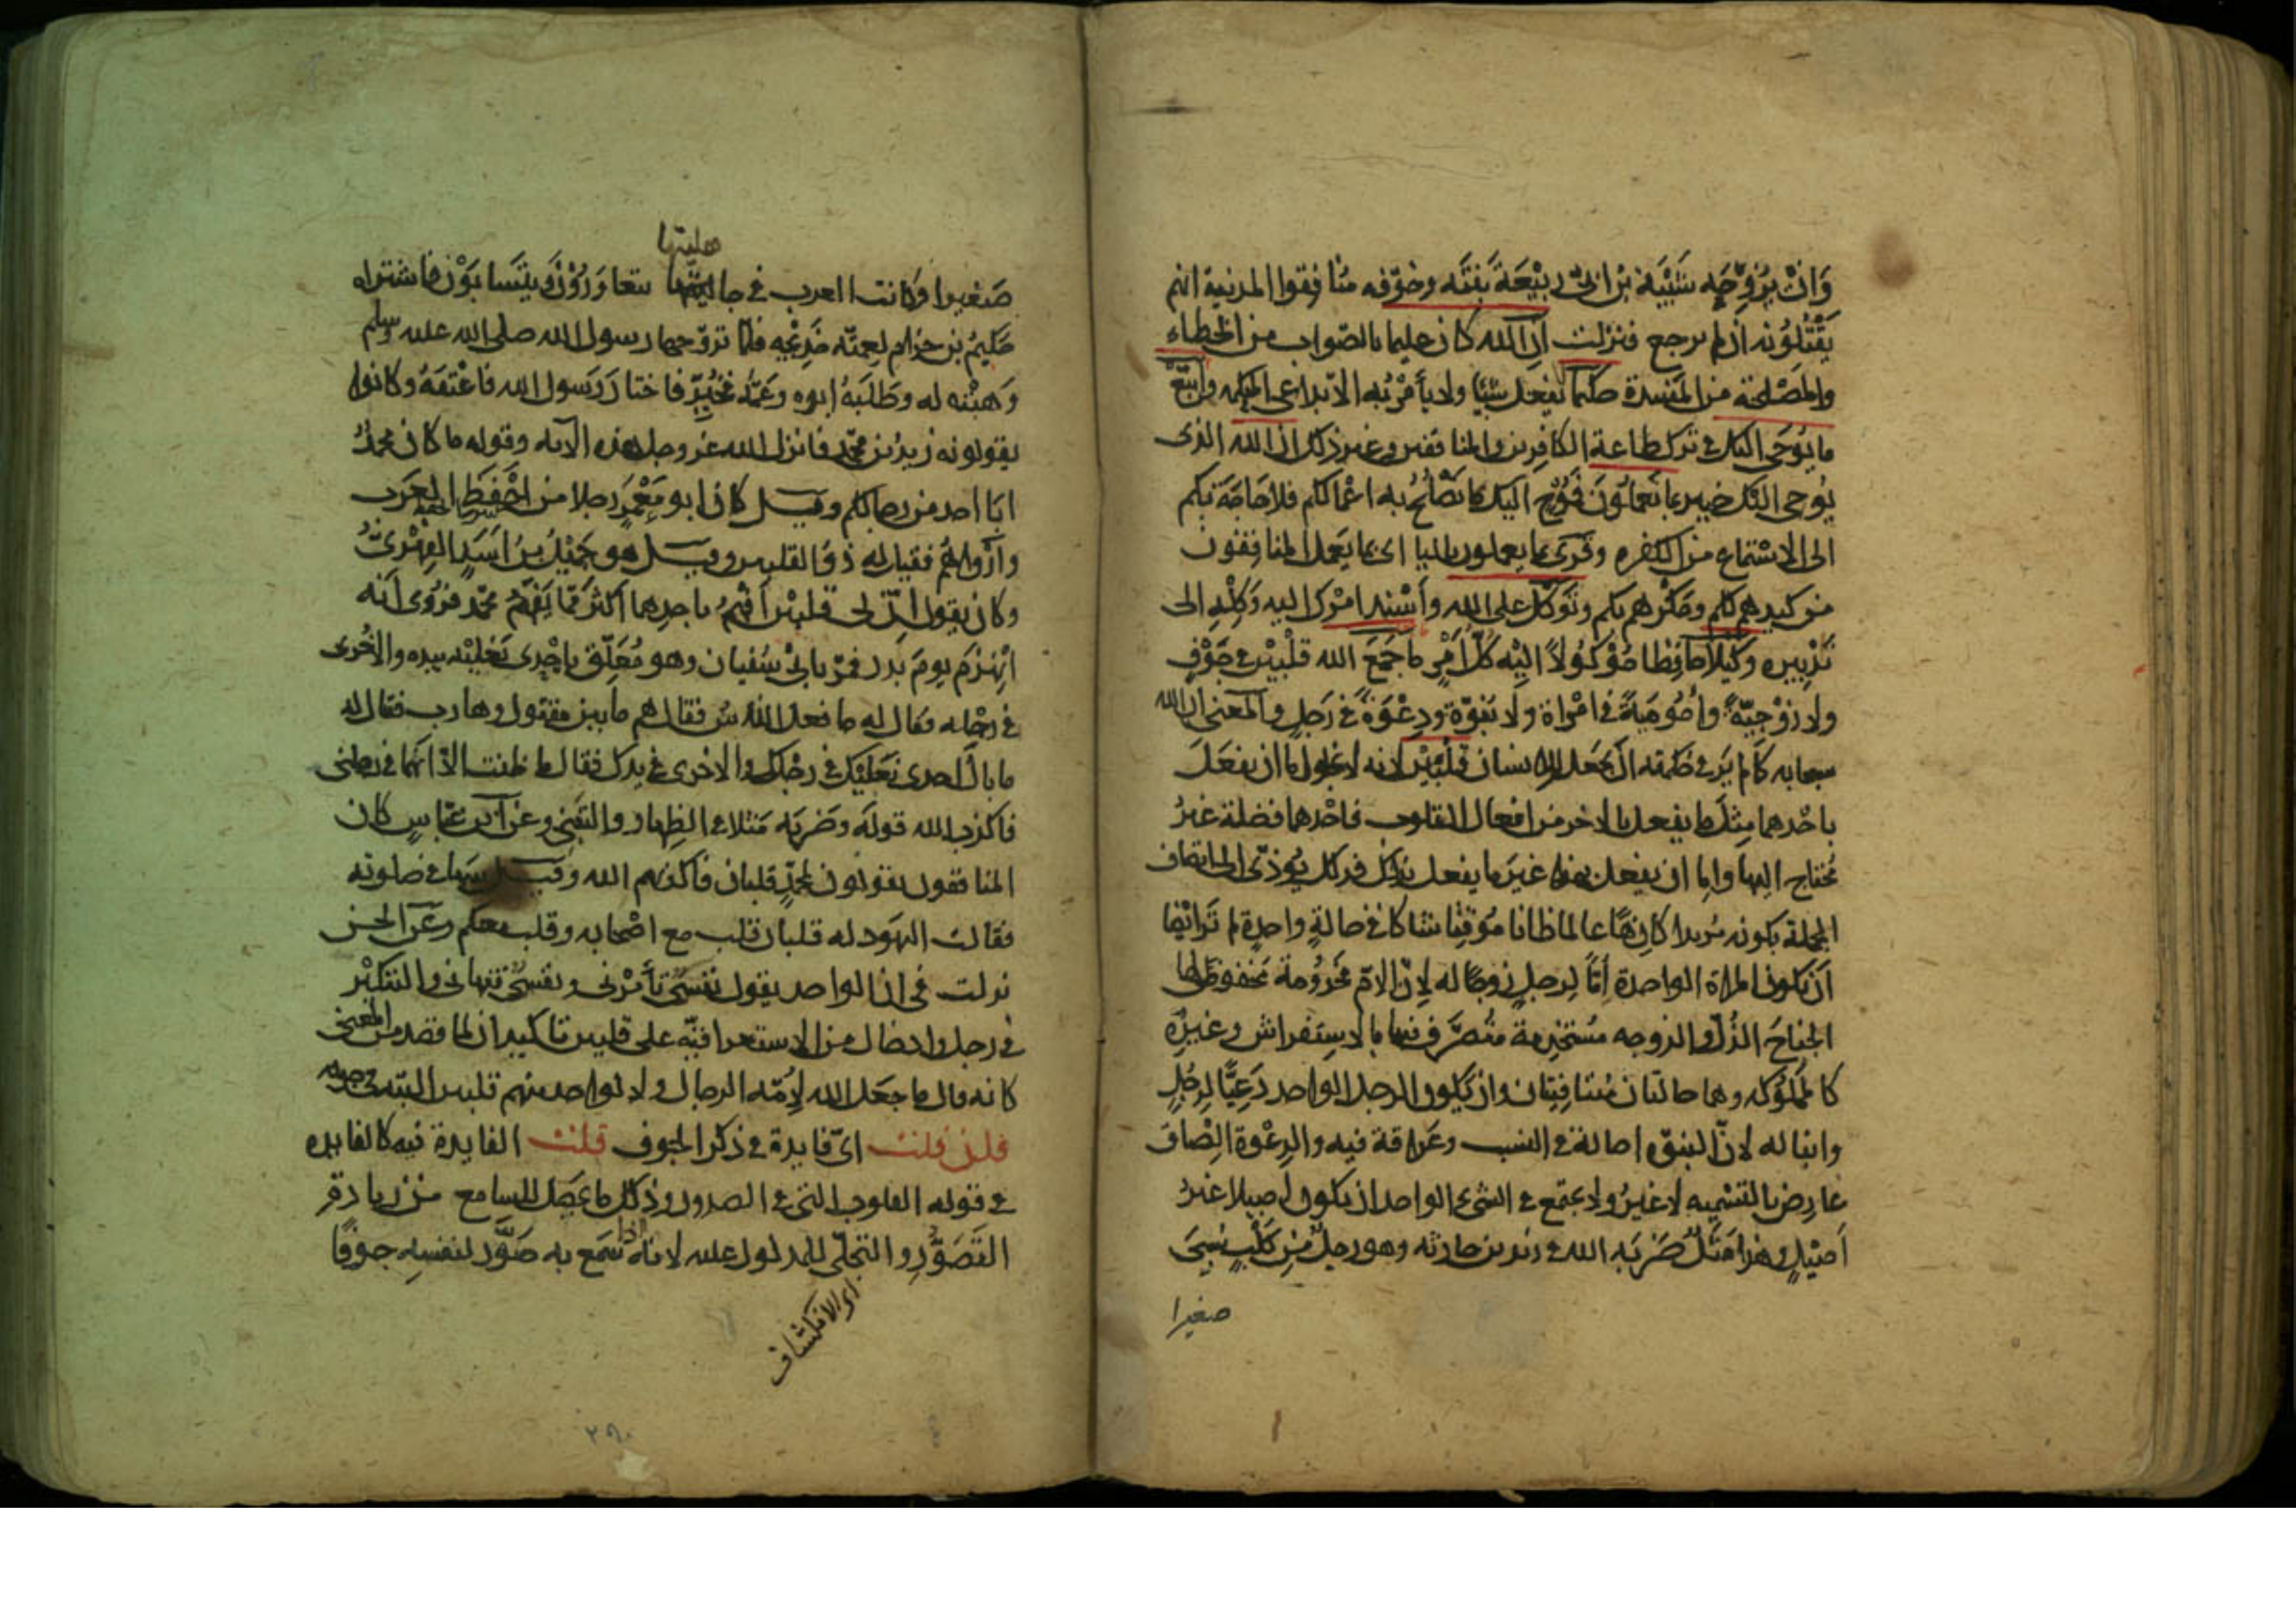 وَانْ يُزَوِّجَه شَيْبَة بن ابى رَبِيْعَةَ بِنتَه وخوّفه مُنافقوا المدينة انهم
يَقْتُلُوْنه ان لم يرجع فنزلت ان الله كان عليما بالصّواب من الخطاء
والمَصْلحة من المَفسدة حكيما لا يفعل شيْئا ولا يأمرُ به الا بداعى الحكمه واتبع
ما يُوْحَى اليك فى ترك طاعة الكافرين والمنافقين وغير ذلك ان الله الذى
يُوحى اليك خبير بما تعملون فمُوْحٍ اليك ما يَصْلُحُ به اعمالكم فلا حاجة بكم
الى الاسْتماع من الكفره وقرئ بما يعملون بالياء اى بما يَعمل المنافقون
من كيدهم لكم ومَكْرهم بكم وتوكل على الله وأسْنِد امرك اليه وَكِلْه الى
تدْبيره وكيلًا حافِظا مَوْكُوْلاً اليْه كلُّ اَمْرٍ ما جَمَعَ الله قلْبَيْن فى جَوْفٍ
ولا زَوْجيّةً واُمُوْمِيَةً فى امْراة ولا بُنوّة ودِعْوَةً فى رَجلٍ والمعنى ان الله
سبحانه كما لم يَرَ فى حكمته ان يجعل للانسان قلْبَيْن لانه لا يخلو اما ان يفعَلَ
باحْدهما مِثْلَ ما يفعل بالاخر من افعال القلوب فاحْدهما فضلة غيرُ
مُحتاج اليها واما ان يفعل بهذا غيرَ ما يفعل بذاك فذلك يُوَذّى الى اتصاف
الجملة بكونه مُريدا كارهًا عالما ظانا مُوْقِنا شاكا فى حالةٍ واحدةٍ لم يَرَ ايْضا
اَن تكون المراة الواحدة أُمّاً لِرجلٍ زوجًا له لِانّ الامّ مخْدُوْمة مخفوض لها
الجناحَ الذُلّ والزوجه مُستخْدِمة مُتصرَّف فيها بالاستفراش وغيرِه
كالمملُوْكه وهما حالتان مُتنافِيَتان وان يَكون الرجل الواحد دَعِيًّا لِرجُلٍ
وابنا له لانّ البنوّه اصالة فى النسب وعَراقة فيه والدِعْوة اِلْصاقَ
عارِض بالتسْمِيه لا غيرُ ولا يجتمع فى الشئ الواحد ان يكون اَصيلا غيرَ
اَصيْلٍ وهذا مَثَلٌ ضَرَبَه الله فى زيد بن حارثه وهو رجلٌ من كَلْبٍ سُبِىَ
صغيرا
هليتها
صَغيرا وكانت العرب فى جاهليّتها يتعاوَرُوْنَ ويتَسابَوْن فاشتراه
حَكيمُ بن حزام لعمّته خَدِيْجه فلمّا تزوّجها رسول الله صلى الله عليه وسلم
وَهبَتْه له وطَلَبَهُ ابوه وعَمُّه فخُيِّرَ فاختارَ رَسول الله فاعْتقَهُ وكانوا
يقولونه زيدُ بن محمّد فانزل الله عز وجل هذه الآيه وقوله ما كان محمدٌ
ابا احد من رجالكم وقيل كان ابو مَعْمَرٍ رجلا من احْفَظِ العَرَب
وارْواهُم فقيل له ذوُ القلبين وقيل هو جَمِيْلُ بنُ اَسَدٍ الفِهْرىُّ
وكان يقول اِنّ لى قلبَيْن اَفْهَمُ باحدِهما اكْثرَ مِمّا يَفْهَمُ محمّد فرُوِى اَنّه
انْهزَم يومَ بَدْر فمرّ بابى سُفيان وهو مُعَلِّق باِحْدى نَعْليْه بيده والاُخْرى
فى رِجْله فقال له ما فعل الناسُ فقال هم ما بين مقتول وهارب فقال له
ما بالُ احدى نَعْليْك فى رِجْلك والاخرى فى يدك فقال ما ظننت الّا انّهما فى رجلى
فاكذب الله قولَه وضَرَبَه مَثلا فى الظِهار والتبنّى وعن ابن عبّاسٍ كان
المنافقون يقولون لمحمّدٍ قلبان فاكذبهم الله وقيل سَها فى صلوته
فقالت اليهَود له قلبان قلب مع اصْحابه وقلب معكم وعَن الحسن
نزلت فى ان الواحد يقول نفسٌ تأمُرنى ونفسٌ تنهانى والتنكيْر
فى رجل وادخال من الاستغراقيّه على قلبين تاكيدان لما قصد من المعنى
كانه قال ما جعَل الله لِاُمّه الرجال ولا لواحد منهم قلبين البتّه فى جوفه
فان قلت اىّ فايدة فى ذكر الجوف قلت الفايدة فيه كالفايده
فى قوله القلوب التى فى الصدور وذلك ما يحصل للسامع من زيادة
التَصَوُّرِ والتجلّى للمدلول عليه لانه اذا سَمع به صَوَّر لنفسِه جوفًا
اى الانكشاف
٢٩٠